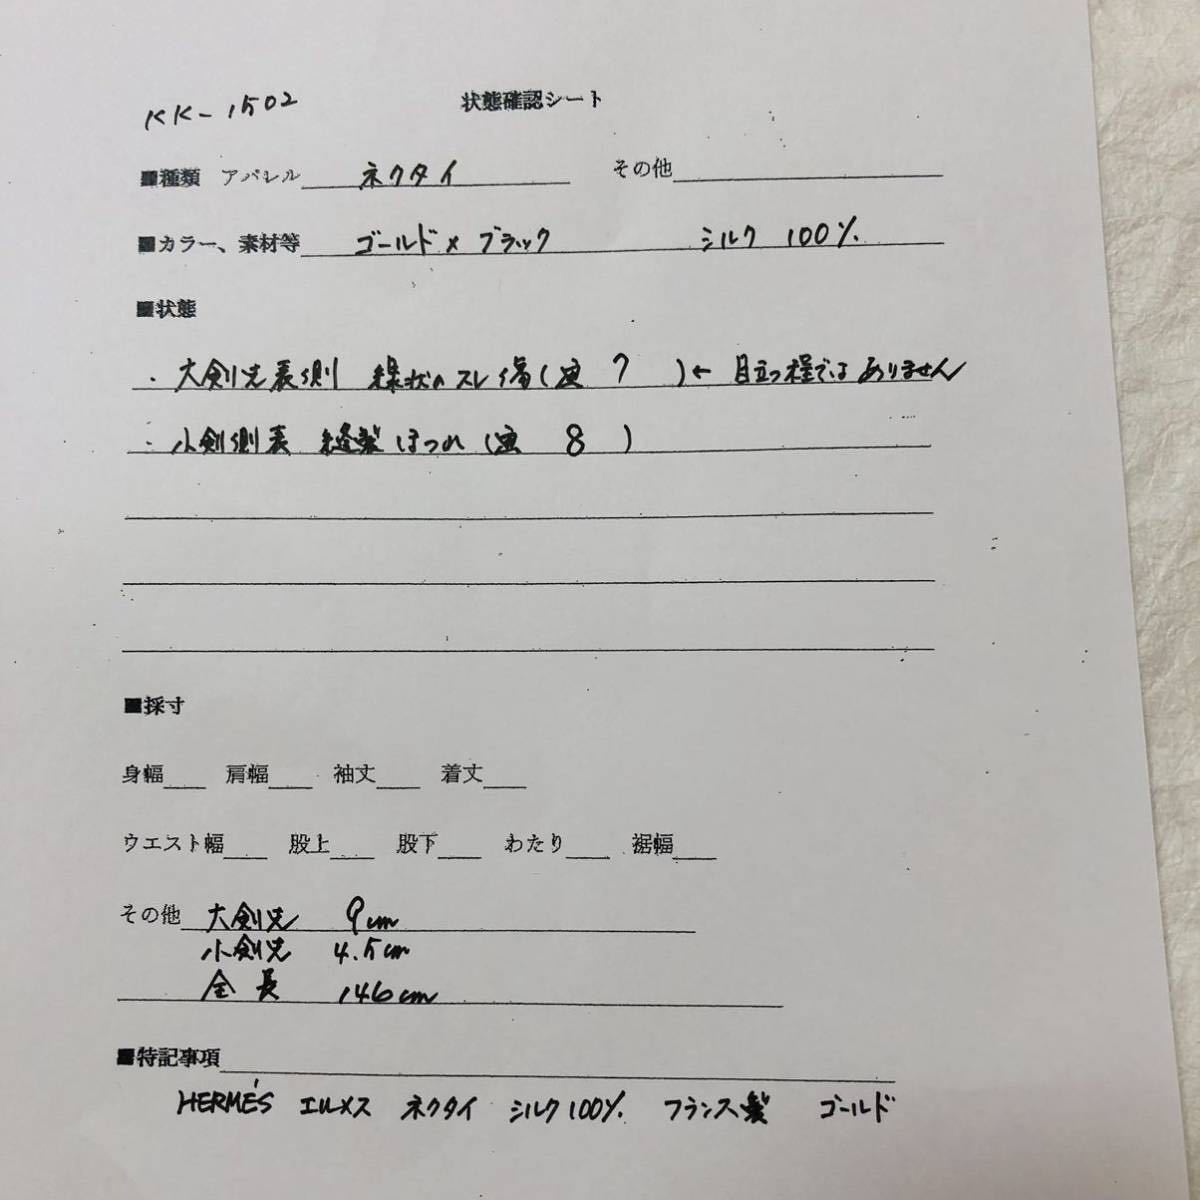 KK-1502 状態確認シート
■種類 アパレル ネクタイ その他
■カラー、素材等 ゴールド×ブラック シルク 100%
■状態
・大剣先表側 線状のスレ傷(画 7 )← 目立つ程ではありません
・小剣側表 縫製ほつれ(画 8 )
■採寸
身幅 肩幅 袖丈 着丈
ウエスト幅 股上 股下 わたり 裾幅
その他 大剣先 9cm
小剣先 4.5cm
全長 146cm
■特記事項
HERMÉS エルメス ネクタイ シルク100% フランス製 ゴールド